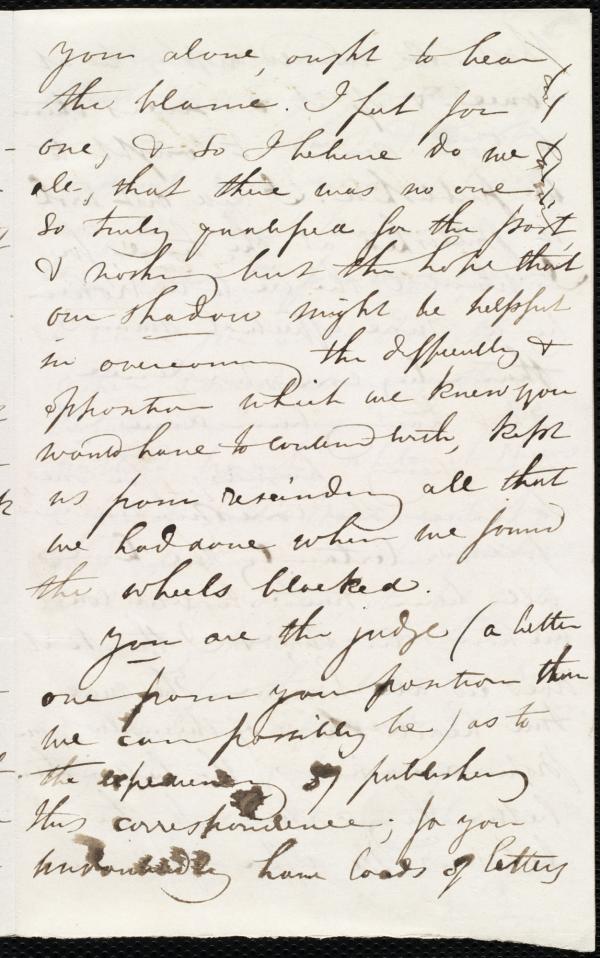 you alone, ought to bear
the blame. I felt for
one, & so I believe do we
all, that there was no one
so truly qualified for the post,
& nothing but the hope that
our shadow might be helpful
in overcoming the difficulty &
opposition which we knew you
would have to contend with, kept
us from rescinding all that
we had done when we found
the wheels blocked.
You are the judge (a better
one from your position than
we can possibly be) as to
the expediency of publishing
this correspondence; for you
undoubtedly have loads of letters